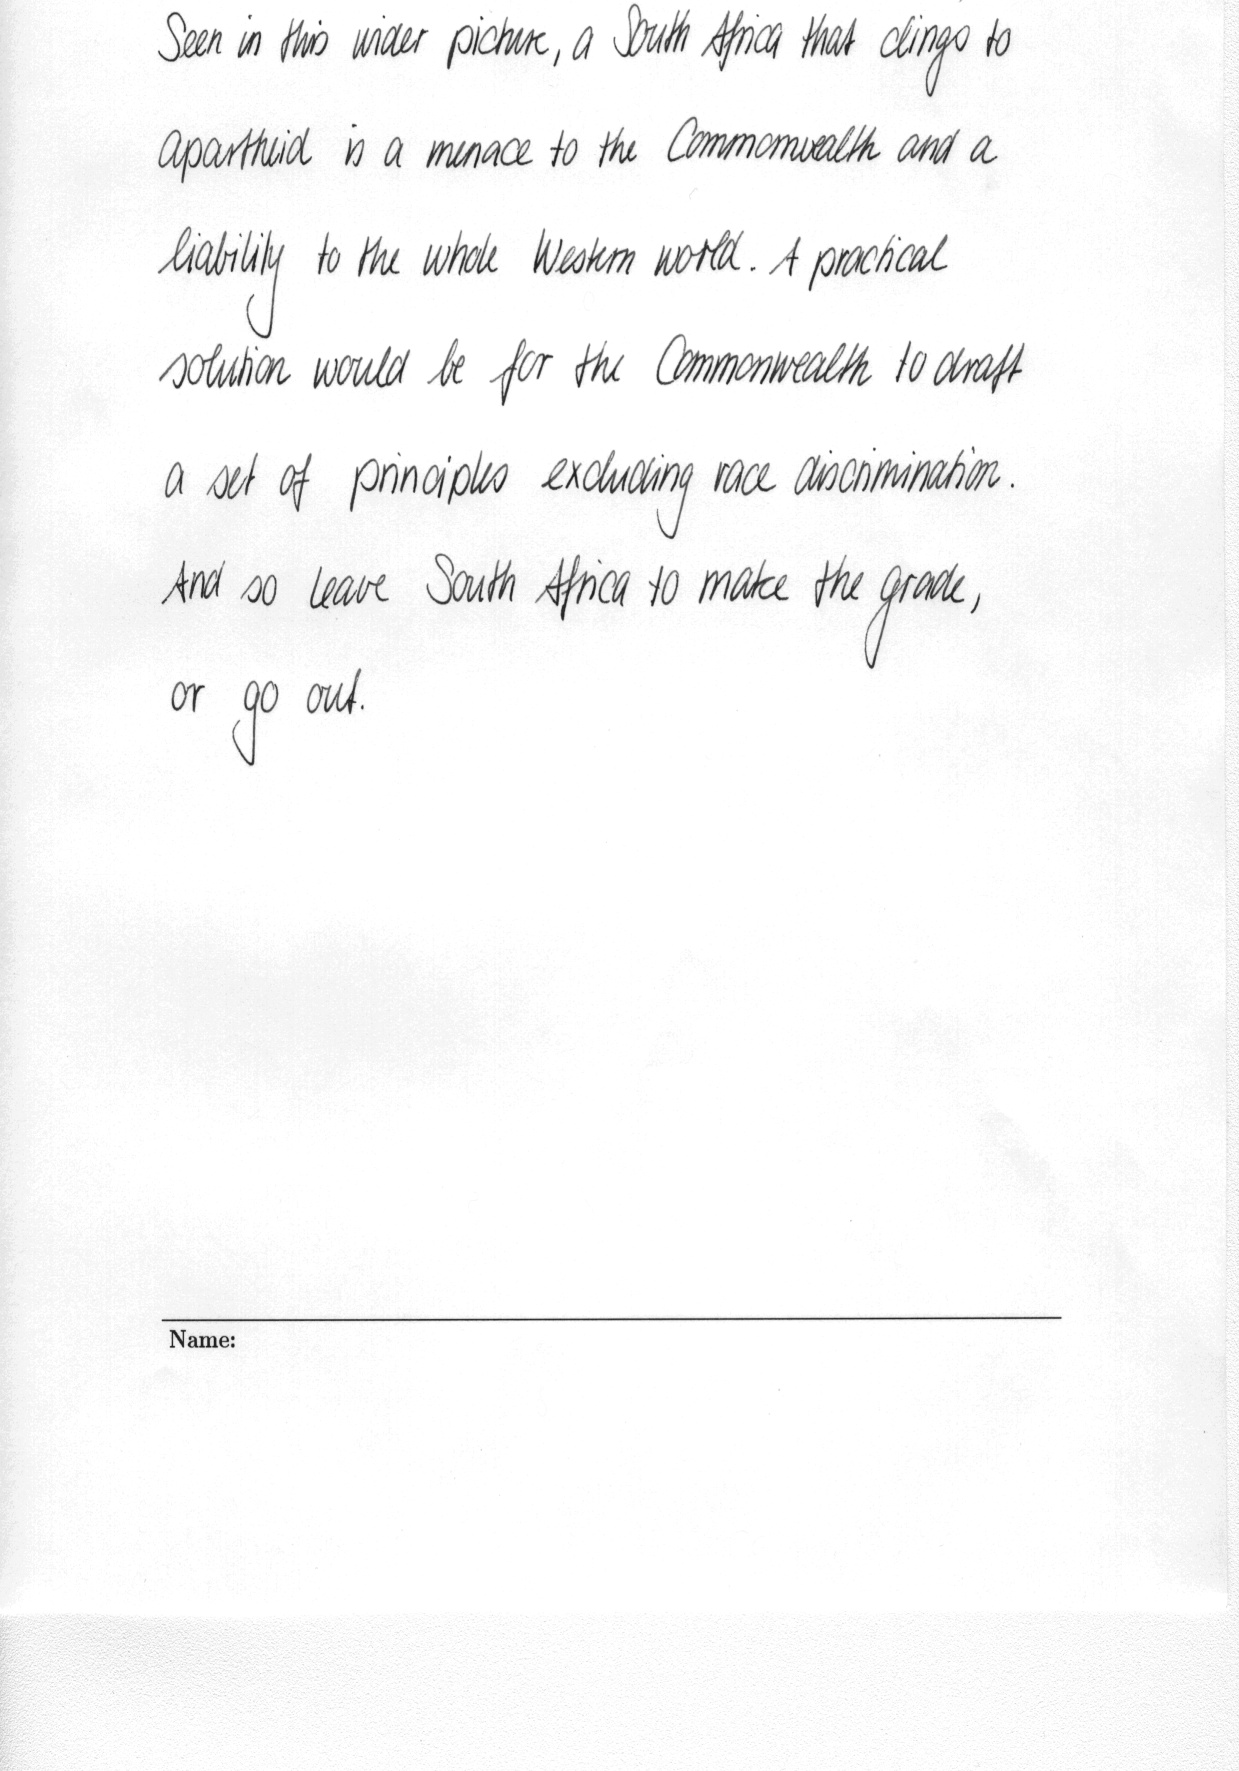 Seen in this wider picture, a South Africa that clings to
apartheid is a menace to the Commonwealth and a
liability to the whole Western world. A practical
solution would be for the Commonwealth to draft
a set of principles excluding race discrimination.
And so leave South Africa to make the grade,
or go out.
Name: